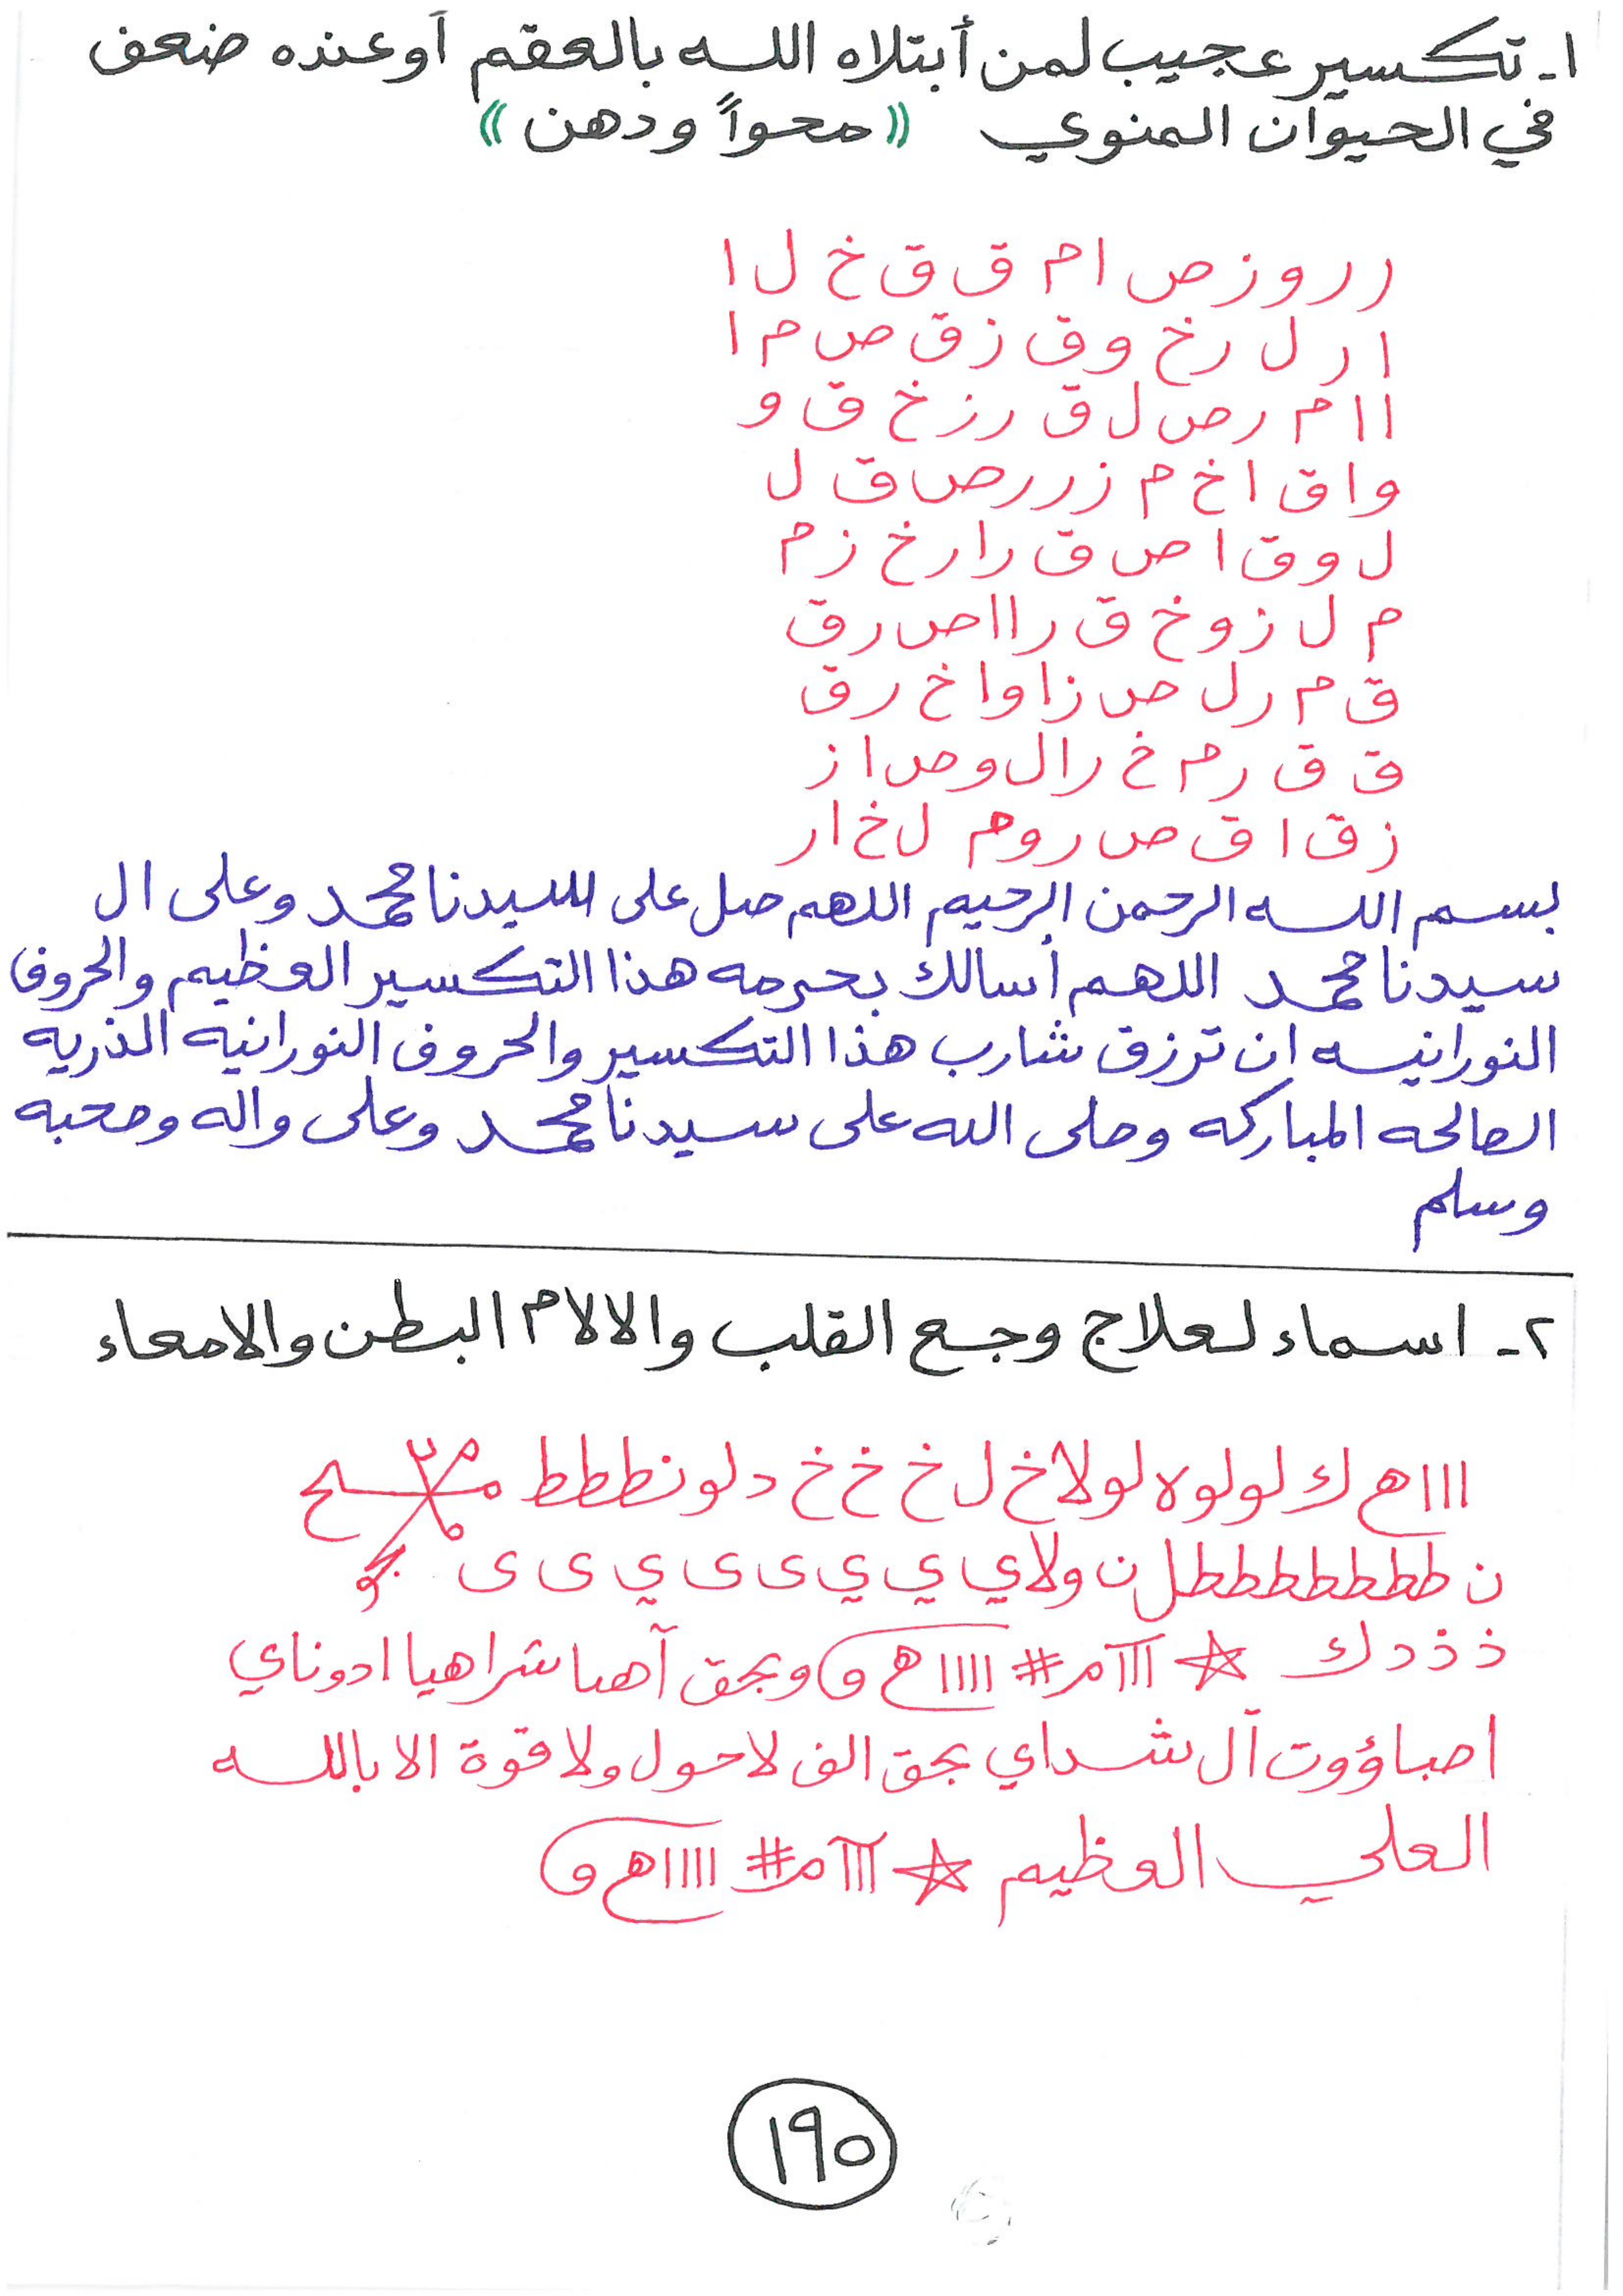 ١- تكسير عجيب لمن أبتلاه الله بالعقم أوعنده ضعف
في الحيوان المنوي «محواً ودهن»
ر ر و ز ص ا م ق ق خ ل ا
ا ر ل ر خ و ق ز ق ص م ا
ا ا م ر ص ل ق ر ز خ ق و
و ا ق ا خ م ز ر ر ص ق ل
ل و ق ا ص ق ر ا ر خ ز م
م ل ز و خ ق ر ا ا ص ر ق
ق م ر ل ص ز ا و ا خ ر ق
ق ق ر م خ ر ا ل و ص ا ز
ز ق ا ق ص ر و م ل خ ا ر
بسم الله الرحمن الرحيم اللهم صل على سيدنا محمد وعلى ال
سيدنا محمد اللهم أسالك بحرمه هذا التكسير العظيم والحروف
النورانيه ان ترزق شارب هذا التكسير والحروف النورانيه الذريه
الصالحه المباركه وصلى الله على سيدنا محمد وعلى واله وصحبه
وسلم
٢- اسماء لعلاج وجع القلب والالام البطن والامعاء
ااا هـ ك لولوه لولاخ ل خ خ خ دلونططط
ن طططططططل ن ولاي ي ي ى ى ي ى ى
ذ ذ د ك ☆ ااا م # اااا هـ و وبحق آهيا شراهيا ادوناي
اصباؤوت آل شداي بحق الف لاحول ولا قوة الا بالله
العلي العظيم ☆ ااا م # اااا هـ و
١٩٥